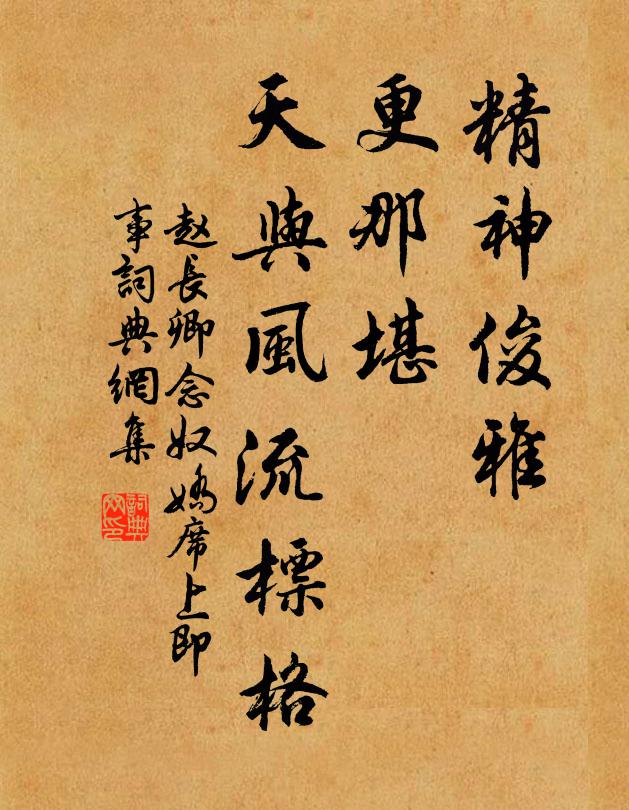 精神俊雅
更那堪
天與風流標格
赵長卿念奴嬌席上即
事詞典網集
詞典